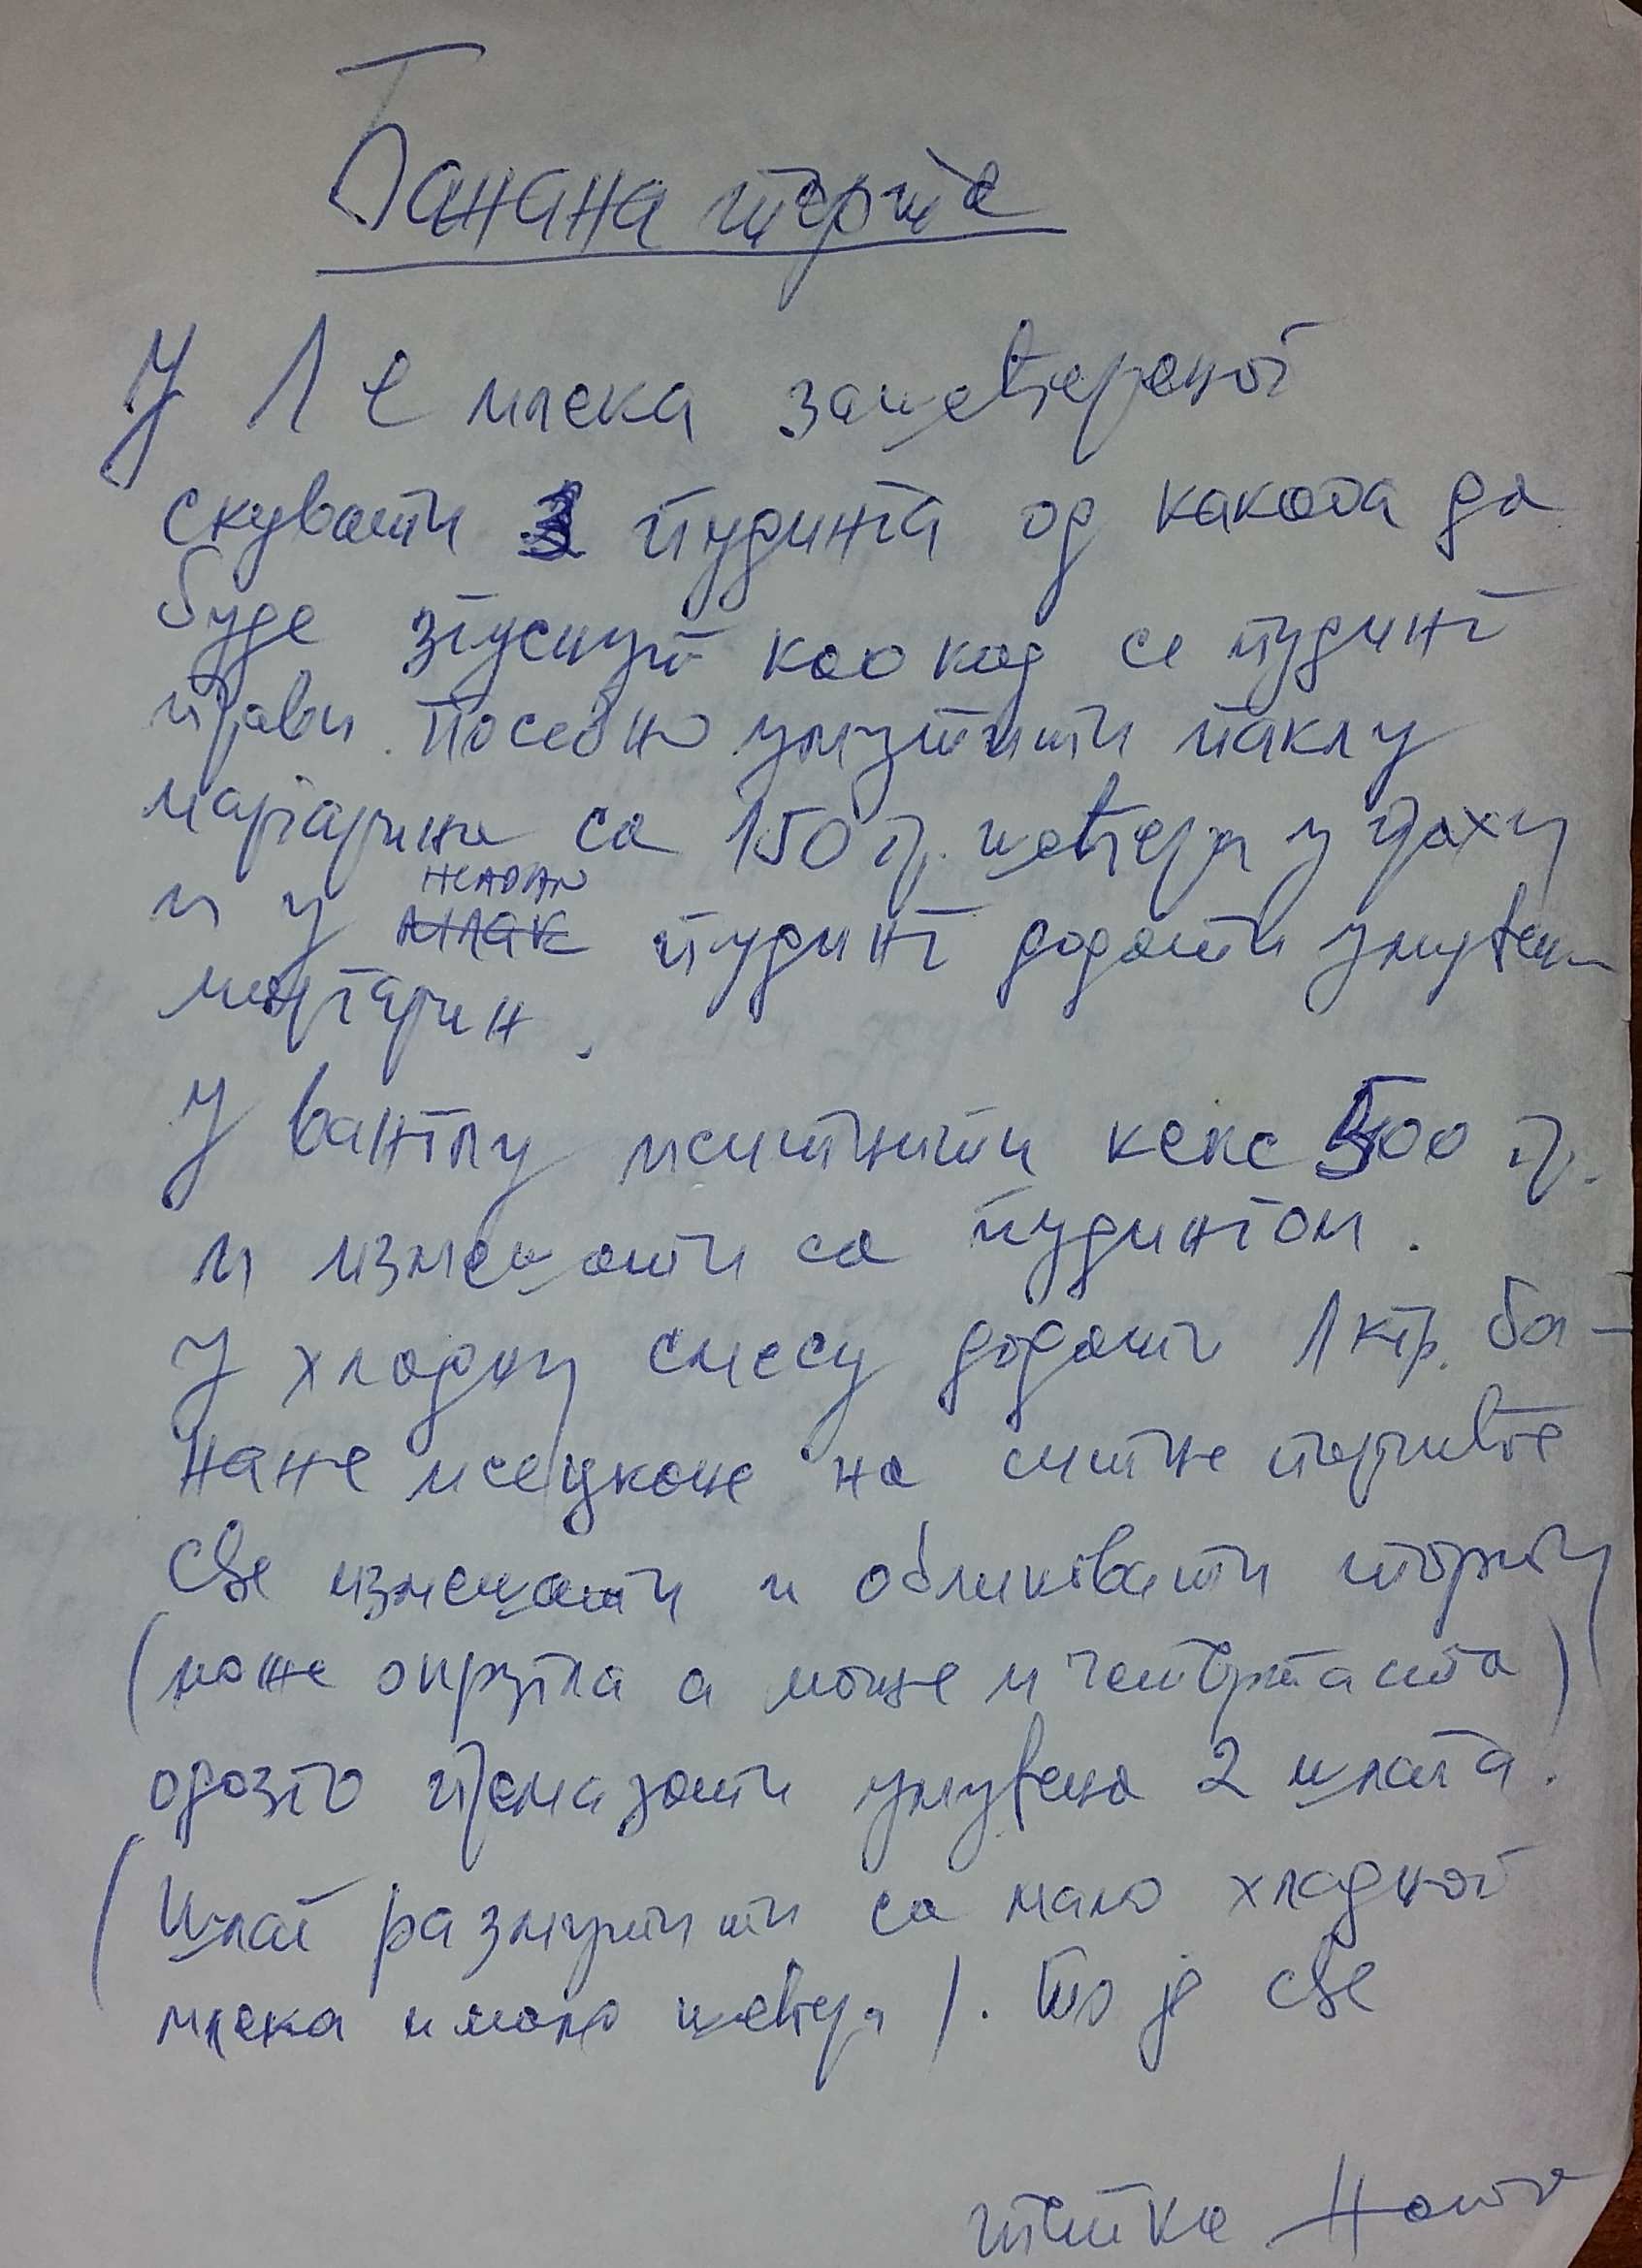 Банана торта
У 1 l млека зашећереног
скувати 3 пудинга од какаоа да
буде згуснут као кад се пудинг
прави. Посебно умутити паклу
маргарина са 150 гр. шећера у праху
и у хладан млак пудинг додати умућен
маргарин.
У вангли иситнити кекс 500 гр.
и измешати са пудингом.
У хладну смесу додати 1 кгр. ба-
нане исецкане на ситне
све измешати и обликовати торту
(може округла а може и четвртаста)
одозго премазати умућена 2 шлага.
(Шлаг размутити са мало хладног
млека и мало шећера). То је све
тетка